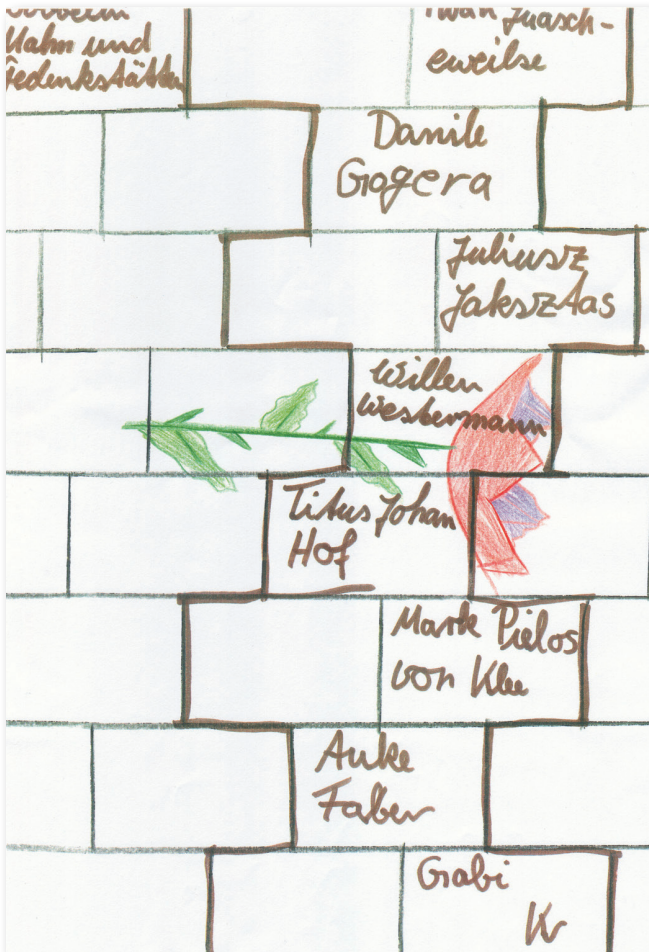 Mahn und
Gedenkstätten
Iwan Juasch-
eweilse
Danile
Gogera
Juliusz
JakszAas
Willen
Westermann
Titus Johan
Hof
Mark Pielos
von Klee
Auke
Faber
Grabi
Kr